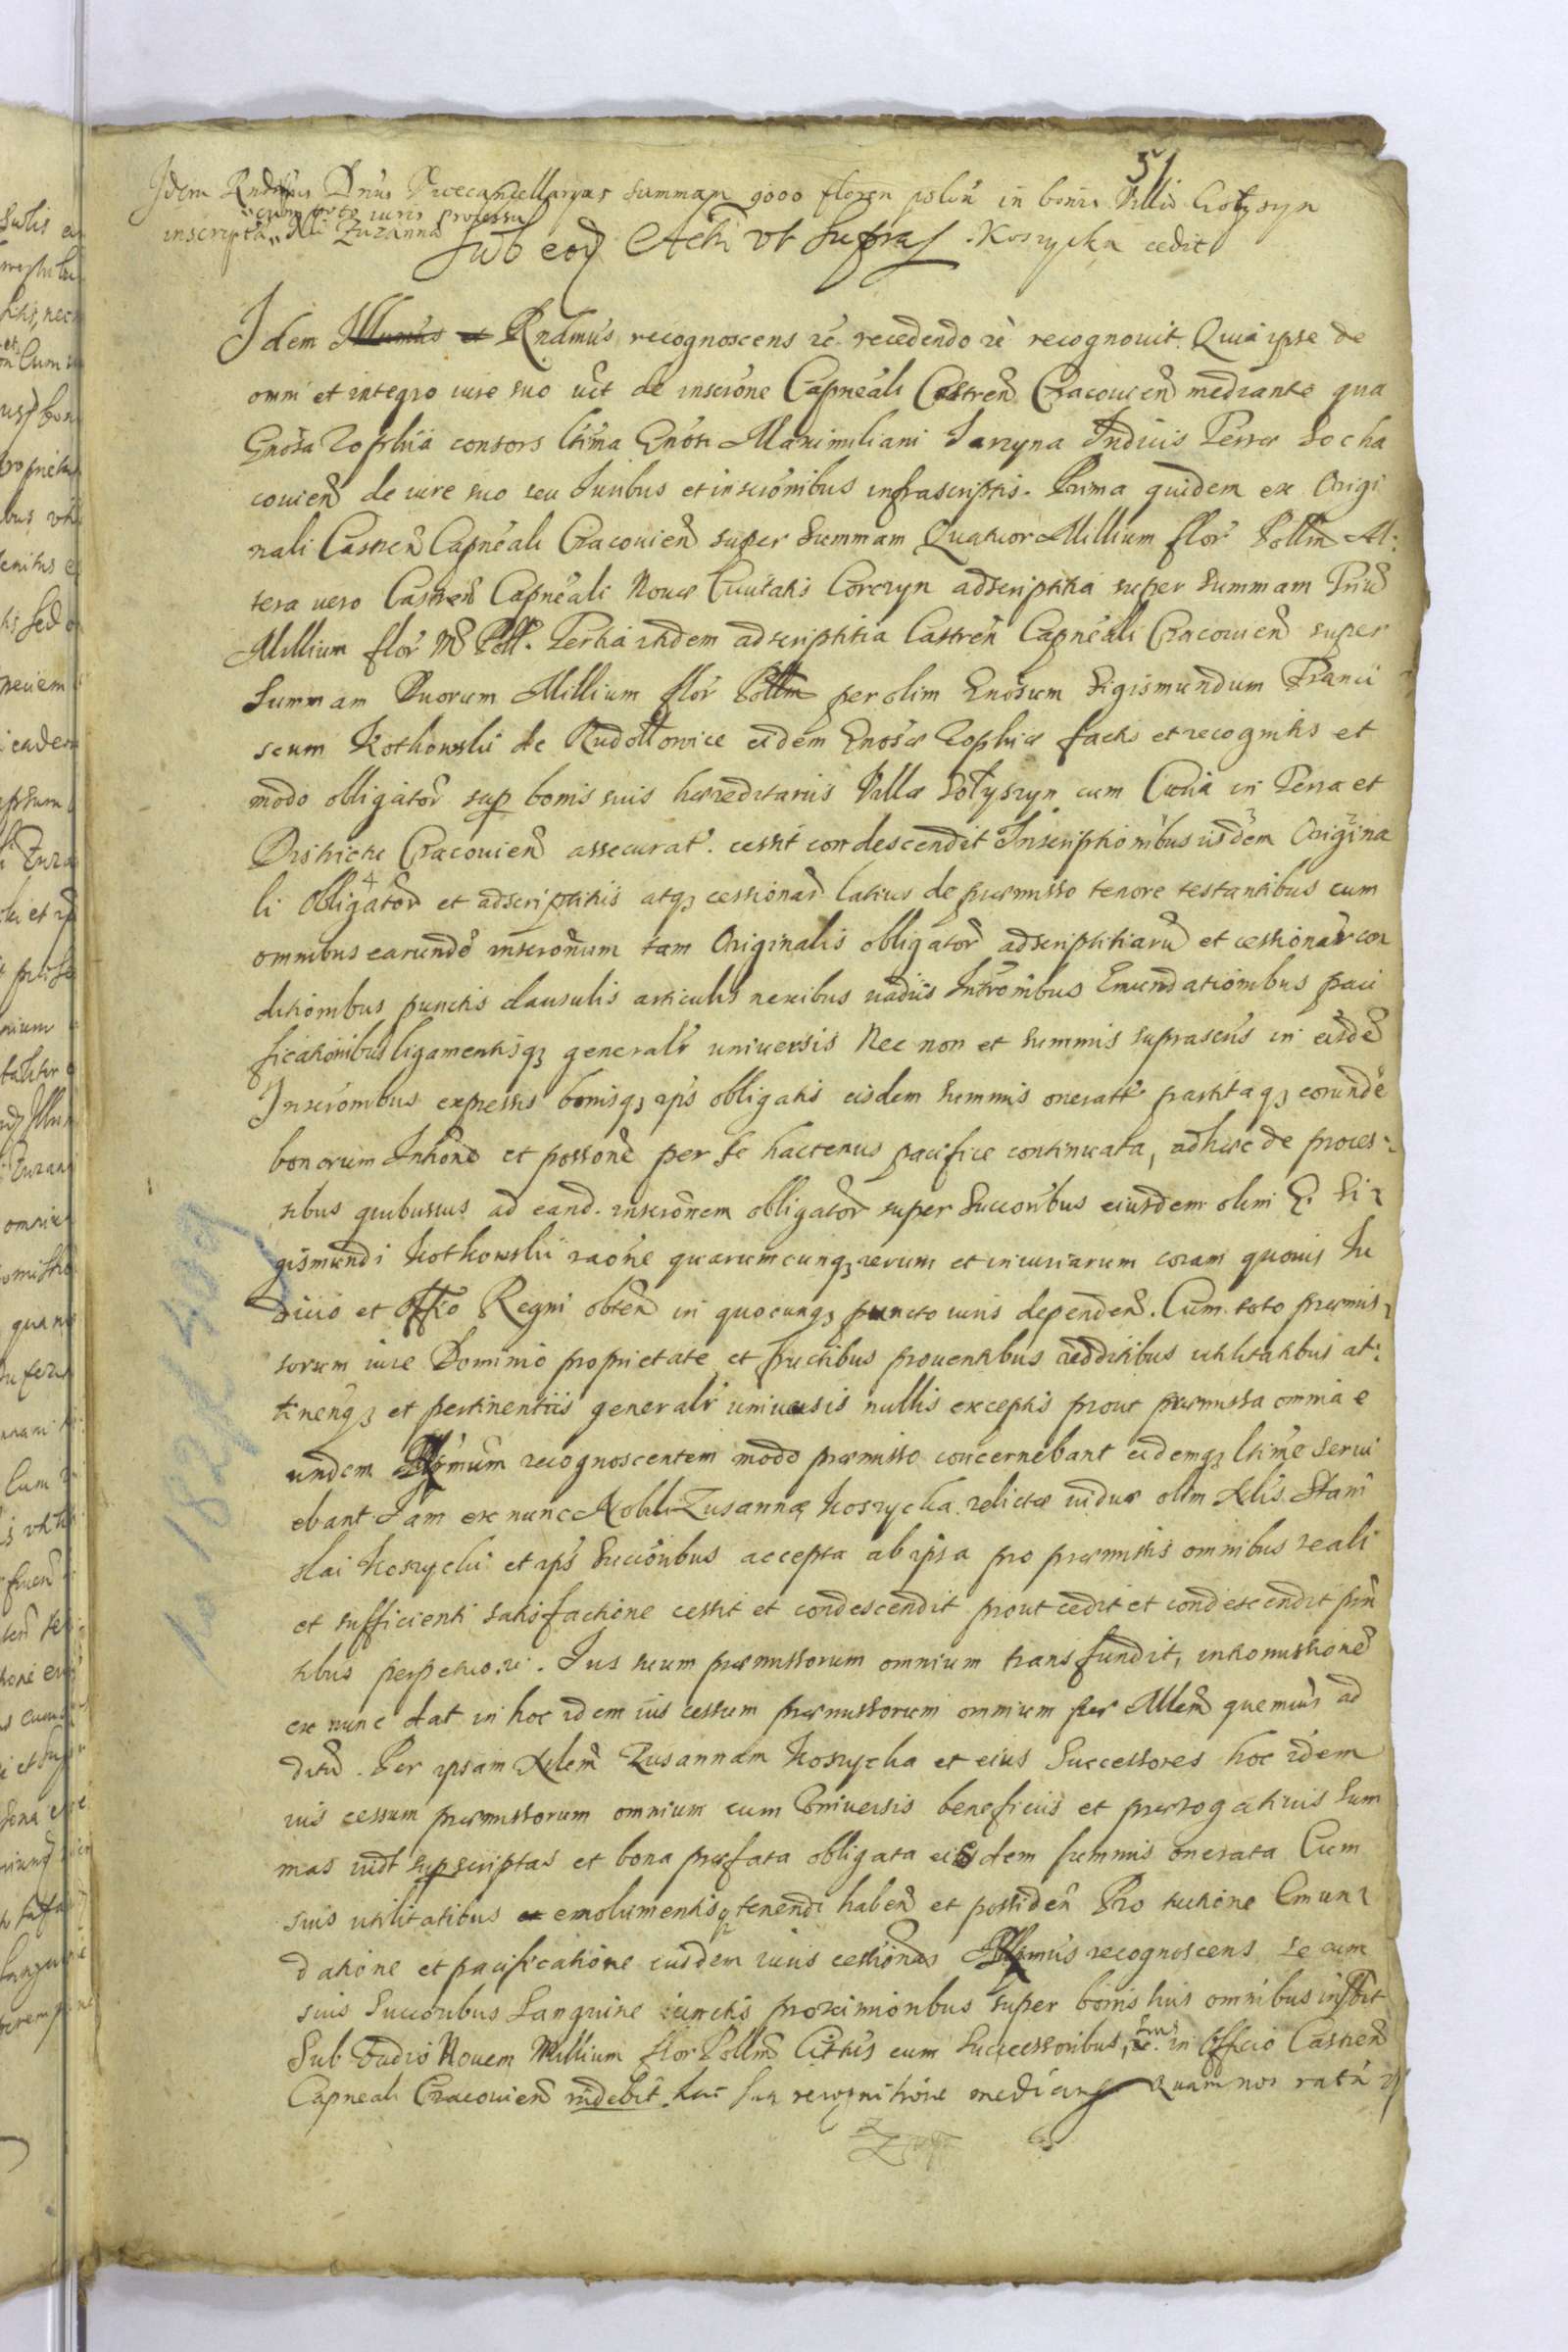 51
Idem Rndmus Dnus Procancellarius summam 9000 floren polon in bonis Villa Sołyszyn
cum toto iuris processu
inscripta Nli Zuzanna
Sub eod Actu ut supra Koszycka cedit
Idem Illumus et Rndmus recognoscens rc recedendo rc recognovit. Quia ipse de
omni et integro iure suo uct de inscrone Capneali Castren Cracouien mediante qua
Gnosa Zophia consors ltima Gnosi Maximiliani Jarzyna Iudicis Terrae Socha
couien de iure suo seu Iuribus et inscronibus infrascriptis. Prima quidem ex Origi
nali Castren Capneali Cracouien super Summam Quatuor Millium flor Pollm Al:
tera uero Castren Capneali Nouae Ciuitatis Corczyn adscriptitia super summam Trium
Millium flor M Poll. Tertia itidem adscriptitia Castren Capneali Cracouien super
Summam Duorum Millium flor Pollm per olim Gnosum Sigismundum Franci
scum Kotkowski de Rudołtowice eidem Gnosae Zophiae factis et recognitis et
modo obligator sup bonis suis haereditariis Villae Sołyszyn cum Curia in Terra et
Districtu Cracouien assecurat. cessit condescendit Inscriptionibus iisdem Origina
li obligator et adscriptitiis atq cessionar latius de praemisso tenore testantibus cum
omnibus earunde inscronum tam Originalis obligator adscriptitiaru et cessionar con
ditionibus punctis clausulis articulis nexibus uadiis Intronibus Emundationibus paci
ficationibus ligamentisq generalr uniuersis Nec non et summis suprascris in eisde
Inscronibus expressis bonisq ips obligatis eisdem summis oneratt partitaq eorunde
bonorum Intione et possone per se hactenus pacifice continuata, adhuc de proces:
sibus quibusuis ad eand. inscronem obligator super Succoribus eiusdem olim G. Si
gismundi Kotkowski raone quarumcunq rerum et iniuriarum coram quouis Iu
dicio et Offio Regni obten in quocunq puncto iuris dependen. Cum toto praemis
sorum iure Dominio proprietate et fructibus prouentibus redditibus utilitatibus at:
tinenq et pertinentiis generalr uniuersis nullis exceptis prout praemissa omnia e
undem recognoscentem modo praemisso concernebant eidemq ltime serui
ebant Iam ex nunc Nobili Zusannae Koszycka relictae uiduae olim Nlis Stani
slai Koszycki et ips Succoribus accepta ab ipsa pro praemissis omnibus reali
et sufficienti satisfactione cessit et condescendit prout cedit et condescendit pnn
tibus perpetuo. rc. Ius suum praemissorum omnium transfundit, intromissione
ex nunc dat in hoc idem ius cessum praemissorum omnium per Mlem quemuis ad
ditu. Per ipsam Nlem Zusannam Koszycka et eius Successores hoc idem
ius cessum praemissorum omnium cum Vniuersis beneficiis et praerogatiuis Sum
mas uidt supscriptas et bona praefata obligata eisdem summis onerata Cum
suis utilitatibus et emolumentisq tenendi haben et possiden Pro tuitione Emun
datione et pacificatione eiusdem iuris cessionar recognoscens se cum
suis Succoribus Sanguine iunctis proximioribus super bonis suis omnibus inscribit
Sub Vadio Nouem Millium flor Pollm Citatus cum Successoribus, rc. in Officio Castren
Capneali Cracouien rndebit. hac sua recognitione median Quam nos ratã rc
Im 182 f 509